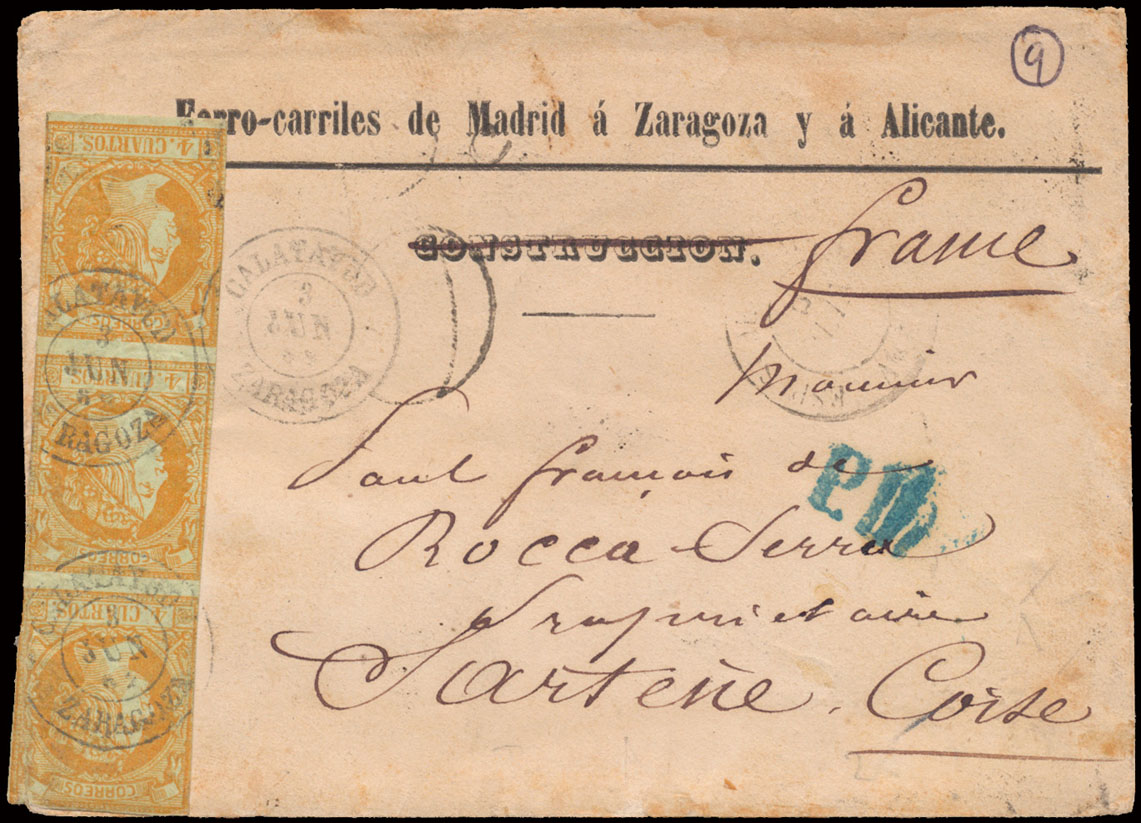 9
Ferro-carriles de Madrid á Zaragoza y á Alicante.
CONSTRUCCION.
france
Monsieur
Paul françois de
Rocca Serra
Propriétaire
Sartène, Corse
PD
CALATAYUD
3
JUN
ZARAGOZA
4 CUARTOS.
CORREOS
CALATAYUD
3
JUN
RAGOZA
4 CUARTOS.
CORREOS
3
JUN
ZARAGOZA
4 CUARTOS.
CORREOS